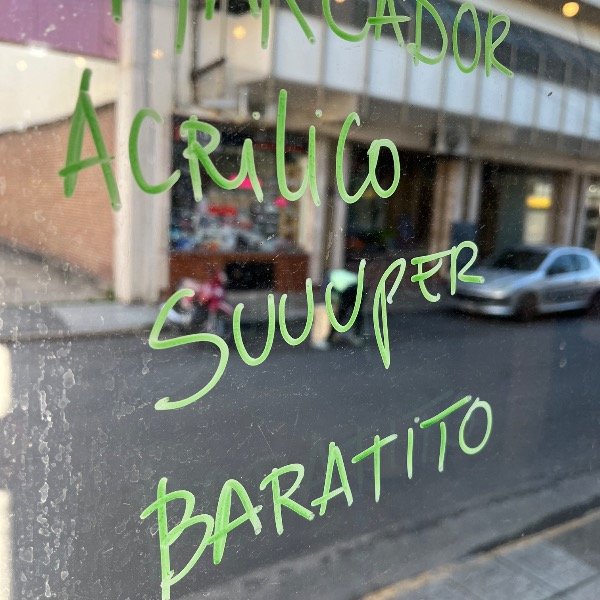 MARCADOR
ÁCRILICO
SUUUPER
BARATITO